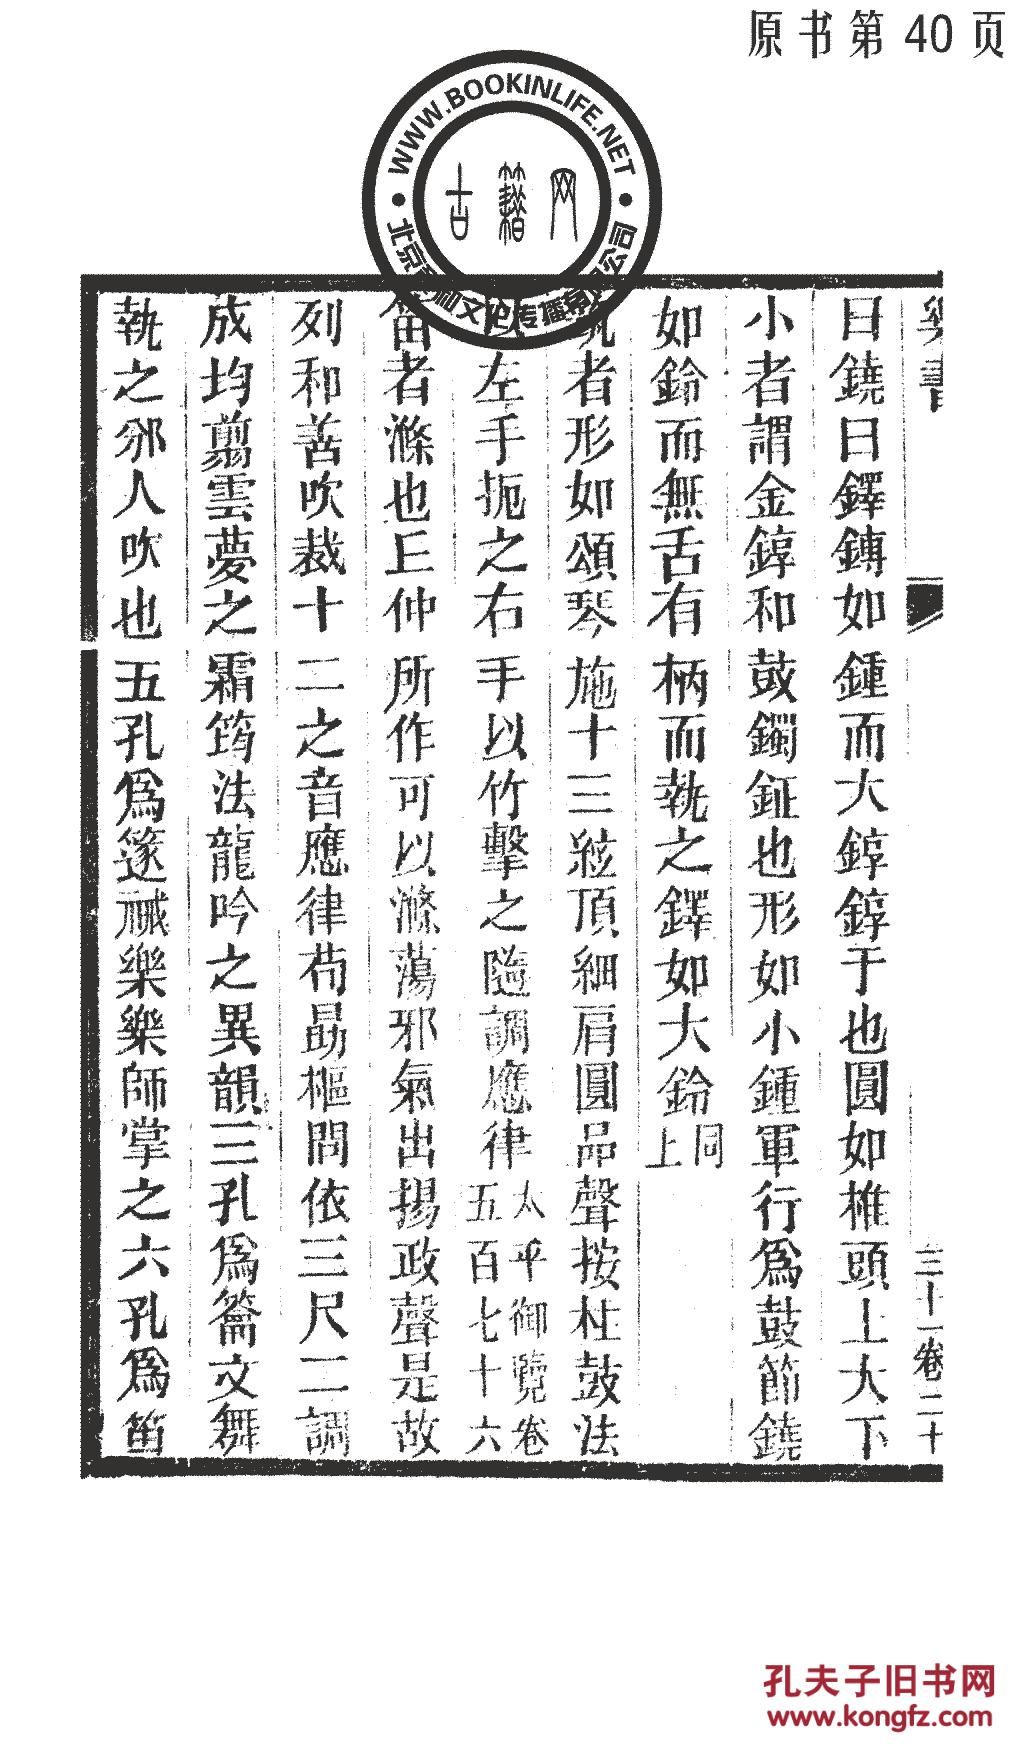 原书第 40 页
WWW.BOOKINLIFE.NET
古籍网
樂書
三十一卷二十
曰鐃曰鐸鏄如鍾而大錞錞于也圓如椎頭上大下
小者謂金錞和鼓鐲鉦也形如小鍾軍行爲鼓節鐃
如鈴而無舌有柄而執之鐸如大鈴同上
者形如頌琴施十三絃頂細肩圓品聲按柱鼓法
左手扼之右手以竹擊之隨調應律太平御覽卷五百七十六
笛者滌也丘仲所作可以滌蕩邪氣出揚政聲是故
列和善吹裁十二之音應律荀勗樞問依三尺二調
成均翦雲夢之霜筠法龍吟之異韻三孔爲籥文舞
執之邠人吹也五孔爲篴祴樂樂師掌之六孔爲笛
孔夫子旧书网
www.kongfz.com